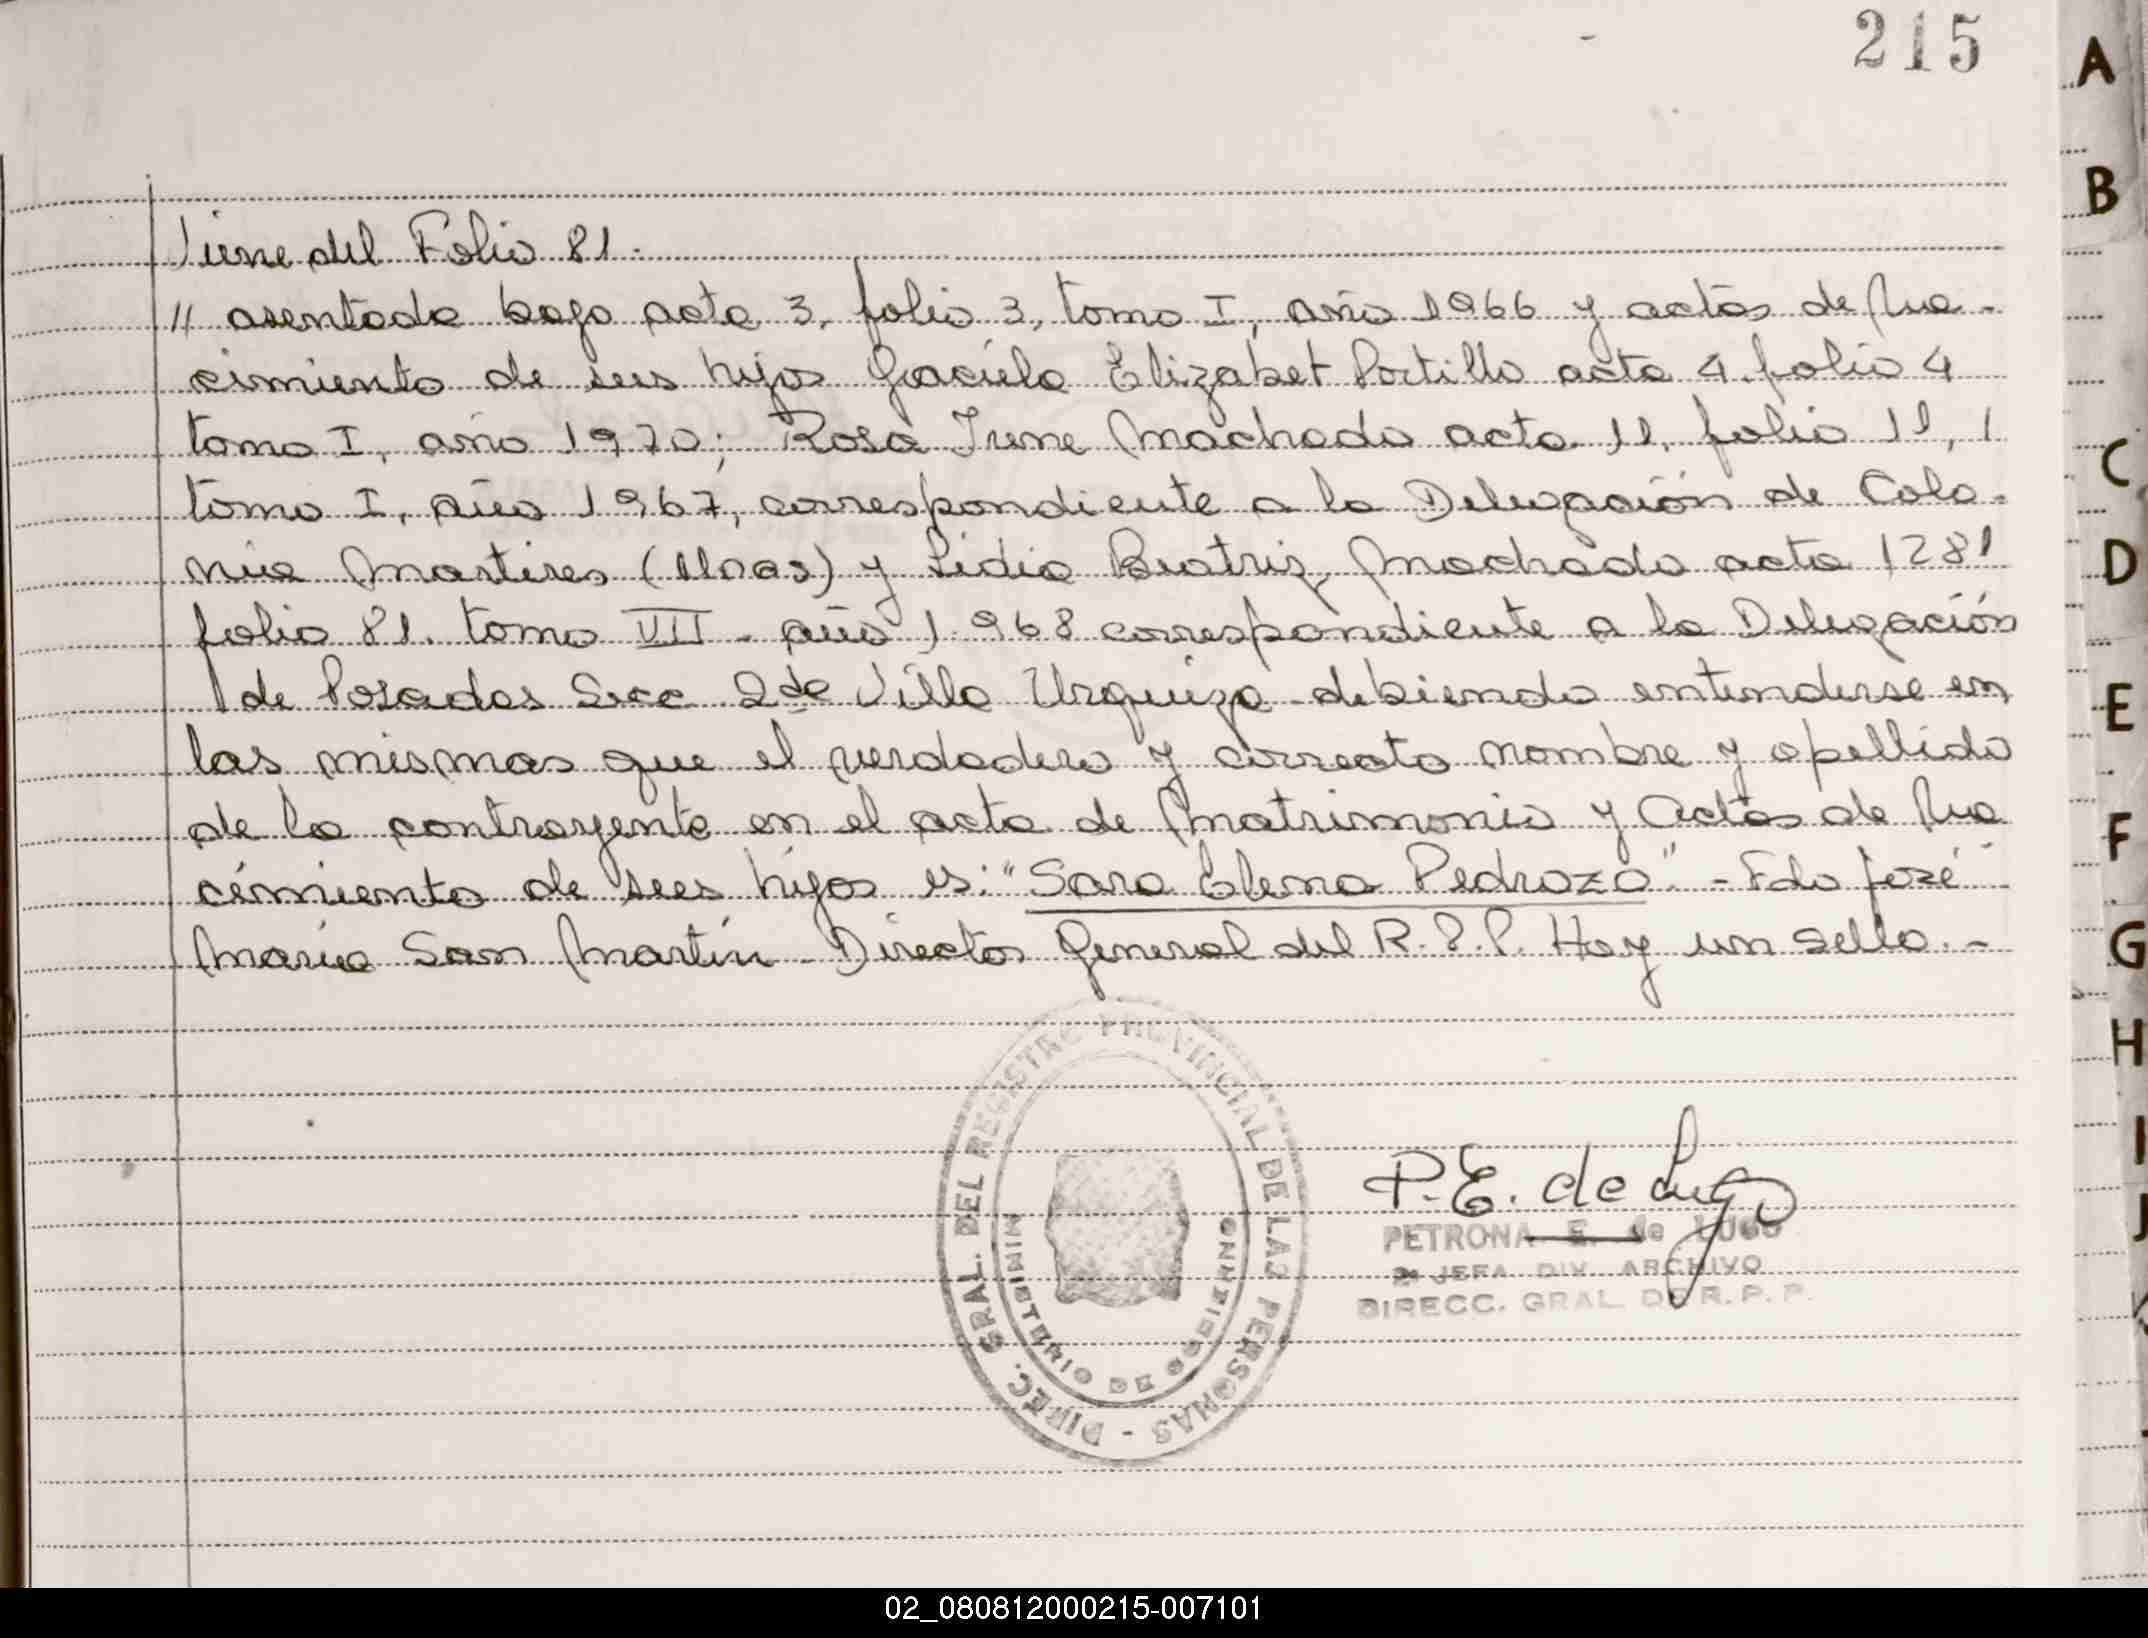 215
Viene del Folio 81.
" asentada bajo acta 3, folio 3, tomo I, año 1966 y actas de Na-
cimiento de sus hijos Graciela Elizabet Portillo acta 4 folio 4
tomo I, año 1970; Rosa Irene Machado acta 11, folio 11,
tomo I, año 1967, correspondiente a la Delegación de Colo-
nia Martires (Mnas) y Lidia Beatriz Machado acta 1281
folio 81. tomo VII - año 1968 correspondiente a la Delegación
de Posadas Secc 2da Villa Urquiza - debiendo entenderse en
las mismas que el verdadero y correcto nombre y apellido
de la contrayente en el acta de Matrimonio y Actas de Na
cimiento de sus hijos es: "Sara Elena Pedrozo" - Fdo José
María San Martín - Director General del R.P.P. Hay un sello. -
DIREC. GRAL. DEL REGISTRO PROVINCIAL DE LAS PERSONAS -
MINISTERIO DE GOBIERNO
P.E. de Lugo
PETRONA E. de LUGO
2º JEFA DIV. ARCHIVO
DIRECC. GRAL. DE R. P. P.
A
B
C
D
E
F
G
H
I
J
02_080812000215-007101